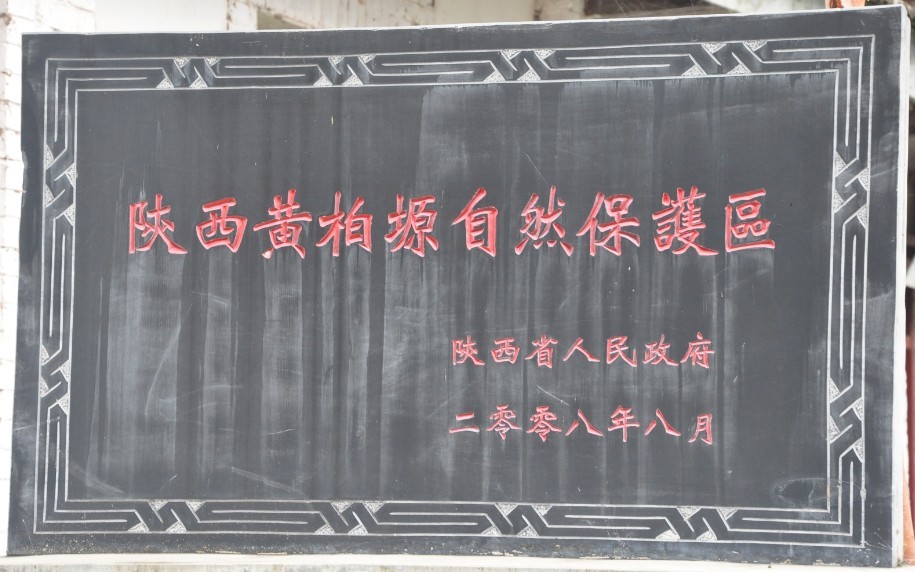 陝西黄柏塬自然保護區
陝西省人民政府
二零零八年八月